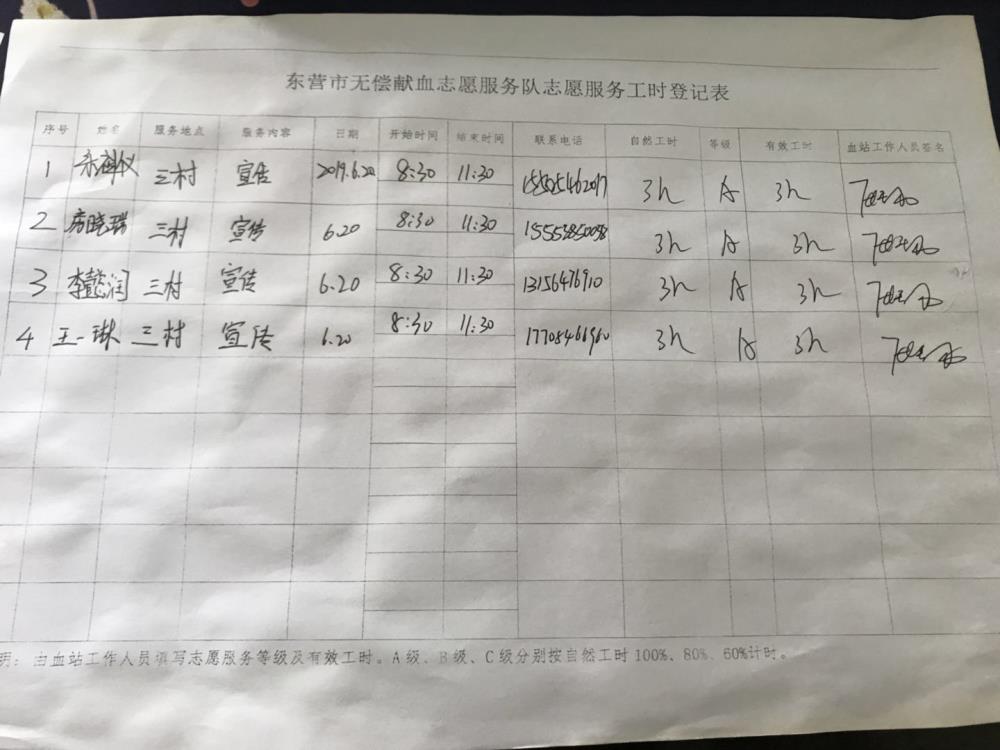 东营市无偿献血志愿服务队志愿服务工时登记表
序号 姓名 服务地点 服务内容 日期 开始时间 结束时间 联系电话 自然工时 等级 有效工时 血站工作人员签名
1 三村 宣传 2017.6.20 8:30 11:30 3h A 3h
2 房晓瑞 三村 宣传 6.20 8:30 11:30 3h A 3h
3 李懿润 三村 宣传 6.20 8:30 11:30 13156476910 3h A 3h
4 王一琳 三村 宣传 6.20 8:30 11:30 17705466960 3h A 3h
明：由血站工作人员填写志愿服务等级及有效工时。A级、B级、C级分别按自然工时100%、80%、60%计时。